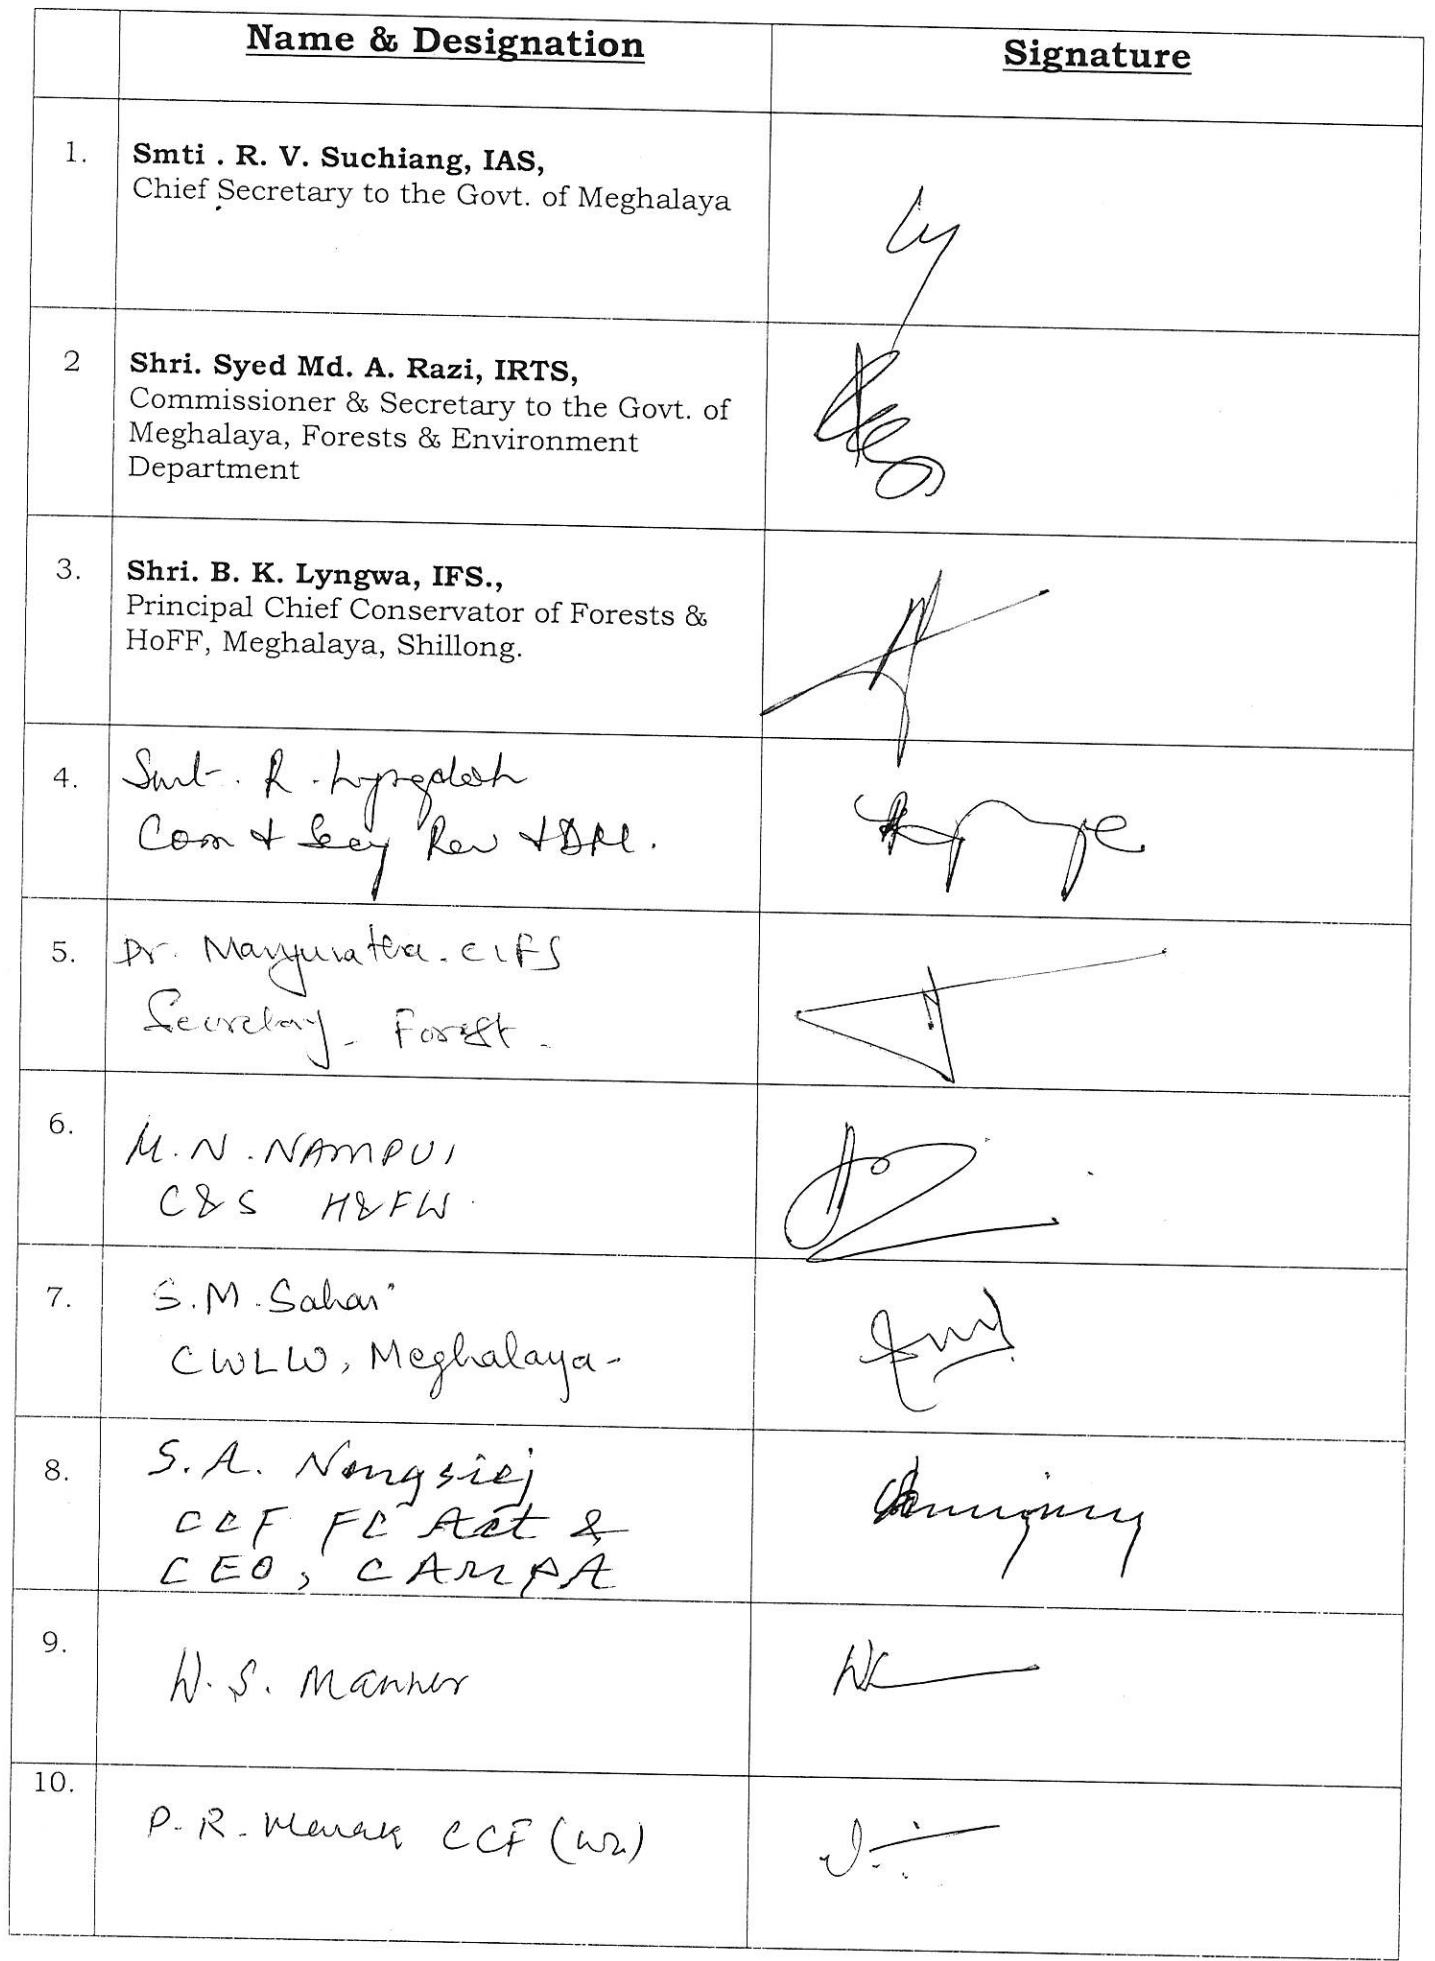 Name & Designation
Signature
1.
Smti . R. V. Suchiang, IAS,
Chief Secretary to the Govt. of Meghalaya
2
Shri. Syed Md. A. Razi, IRTS,
Commissioner & Secretary to the Govt. of
Meghalaya, Forests & Environment
Department
3.
Shri. B. K. Lyngwa, IFS.,
Principal Chief Conservator of Forests &
HoFF, Meghalaya, Shillong.
4.
Smt. R. Lyngdoh
Com & Secy Rev & DM.
5.
Dr. Manjunatha. C IFS
Secretary - Forest.
6.
M.N. NAMPUI
C&S H&FW
7.
S.M. Sahai
CWLW, Meghalaya-
8.
S.A. Nongsiej
CCF FC Act &
CEO, CAMPA
9.
W.S. Manner
10.
P.R. Marak CCF